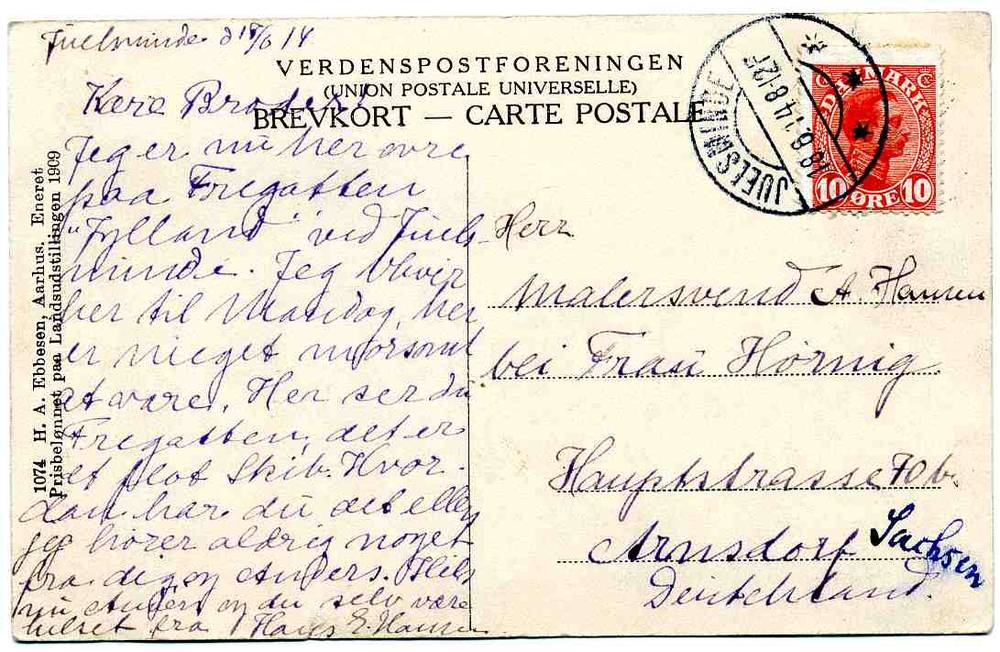 Juelsminde d 18/6 14
VERDENSPOSTFORENINGEN
(UNION POSTALE UNIVERSELLE)
BREVKORT — CARTE POSTALE
Kære Broder!
Jeg er nu her ovre
paa Fregatten
"Jylland" ved Juels-
minde. Jeg bliver
her til Mandag, her
er meget morsomt
at være. Her ser du
Fregatten, det er
et flot Skib. Hvor-
dan har du det ellers
jeg hører aldrig noget
fra dig og Anders. Hils
nu Anders og du selv være
hilset fra Hans E. Hansen
1074 H. A. Ebbesen, Aarhus. Eneret
Prisbelønnet paa Landsudstillingen 1909
JUELSMINDE
18.6.14 8-12F
DANMARK
10 ØRE 10
Herr
Malersvend A. Hansen
bei Frau Hörnig
Hauptstrasse 70 b.
Arnsdorf Sachsen
Deutchland.